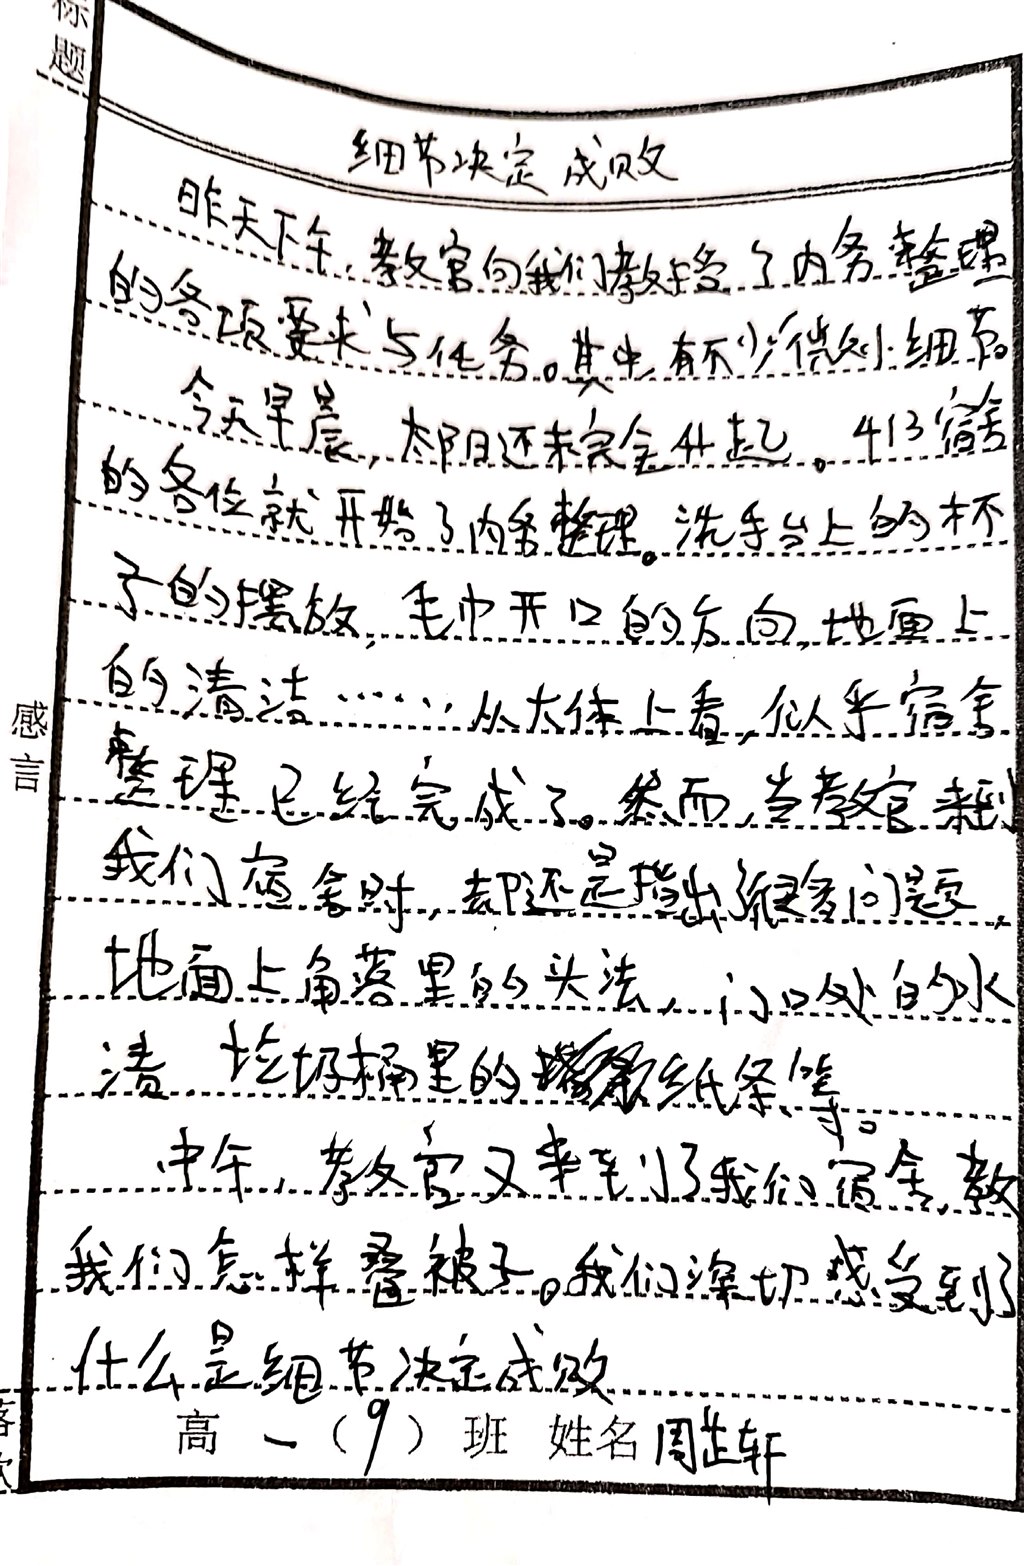 标题
细节决定成败
昨天下午,教官向我们教授了内务整理
的各项要求与任务。其中有不少微小细节。
今天早晨,太阳还未完全升起。413宿舍
的各位就开始了内务整理。洗手台上的杯
子的摆放,毛巾开口的方向,地面上
的清洁……从大体上看,似乎宿舍
感言
整理已经完成了。然而,当教官来到
我们宿舍时,却还是指出了很多问题,
地面上角落里的头法,门口处的水
渍,垃圾桶里的纸条等。
中午,教官又来到了我们宿舍,教
我们怎样叠被子。我们深切感受到了
什么是细节决定成败
落款
高一(9)班 姓名周芷轩